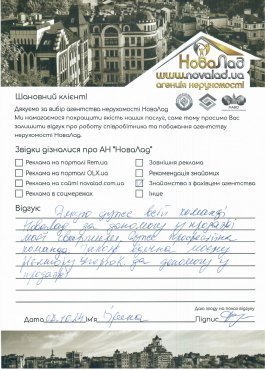 НоваЛад
www.novalad.ua
агенція нерухомості
Шановний клієнт!
Дякуємо за вибір агентства нерухомості НоваЛад
Ми намагаємося покращити якість наших послуг, саме тому просимо Вас
залишити відгук про роботу співробітника та побажання агентству
нерухомості НоваЛад.
Звідки дізналися про АН "НоваЛад"
Реклама на порталі Rem.ua
Зовнішня реклама
Реклама на порталі OLX.ua
Рекомендація знайомих
Реклама на сайті novalad.com.ua
Знайомство з фахівцем агентства
Реклама в соцмережах
Інше
Відгук:
дуже всій команді
НоваЛад за допомогу у продажі
моєї Дуже професійна
команда. Також моєму
за допомогу у
продажі!
Даю згоду на показ відгуку
Дата 02.10.24 Ім'я Ірина Підпис